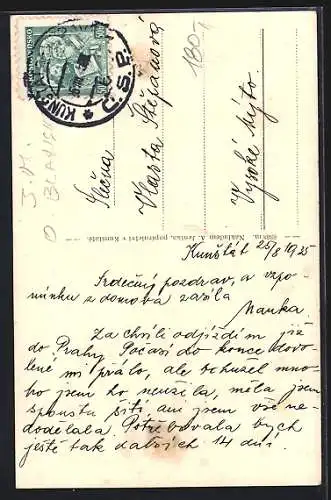 180.-
KUNŠ
Č.S.P.
J. M.
O. BLANSK
Slečna
Vlasta Štěpánová
Vysoké Mýto.
Nákladem A. Jenika, papírnictví v Kunštátě.
Kunštát 25/8 1925
Srdečný pozdrav, a vzpo-
mínku z domova zasílá
Manka.
Za chvíli odjíždím již
do Prahy. Počasí do konce dovo-
lené mi přálo, ale bohužel mno-
ho jsem ho neužila, měla jsem
spoustu šití, ani jsem vše ne-
dodělala. Potřebovala bych
ještě tak dalších 14 dní.